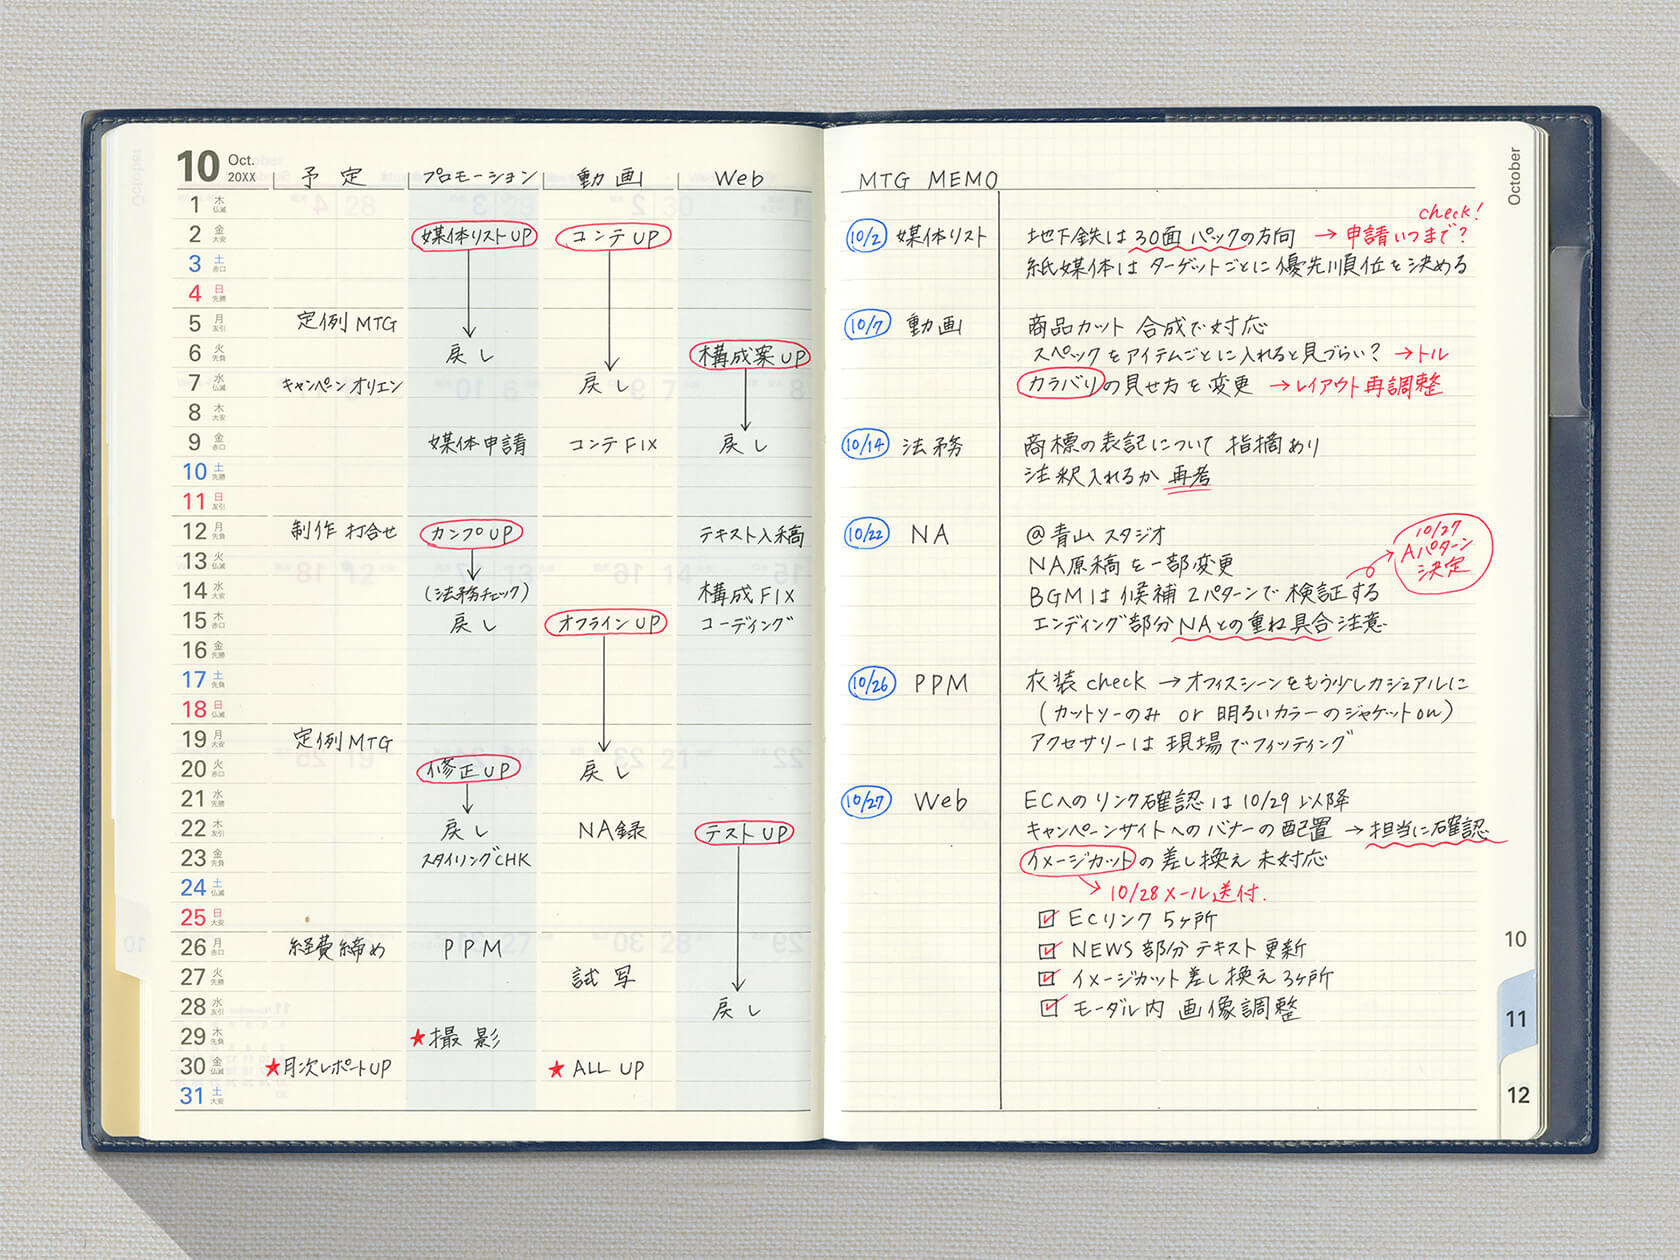 10 Oct. 20XX 予定 プロモーション 動画 Web
1 木 仏滅
2 金 大安 媒体リストUP コンテUP
3 土 赤口
4 日 先勝
5 月 友引 定例MTG
6 火 先負 戻し 構成案UP
7 水 仏滅 キャンペンオリエン 戻し
8 木 大安
9 金 赤口 媒体申請 コンテFIX 戻し
10 土 先勝
11 日 友引
12 月 先負 制作打合せ カンプUP テキスト入稿
13 火 仏滅
14 水 大安 (法務チェック) 構成FIX
15 木 戻し オフラインUP コーディング
16 金 先勝
17 土 先負
18 日 仏滅
19 月 大安 定例MTG
20 火 赤口 修正UP 戻し
21 水 先勝
22 木 友引 戻し NA録 テストUP
23 金 先負 スタイリングCHK
24 土 仏滅
25 日 大安
26 月 赤口 経費締め PPM
27 火 先勝 試写
28 水 友引 戻し
29 木 先負 ★撮影
30 金 仏滅 ★月次レポートUP ★ALL UP
31 土 大安
MTG MEMO
October
check!
10/2 媒体リスト 地下鉄は30面パックの方向 →申請いつまで?
紙媒体はターゲットごとに優先順位を決める
10/7 動画 商品カット 合成で対応
スペックをアイテムごとに入れると見づらい? →トル
カラバリの見せ方を変更 →レイアウト再調整
10/14 法務 商標の表記について指摘あり
注釈入れるか再考
10/22 NA @青山スタジオ
NA原稿を一部変更
BGMは候補2パターンで検証する
10/27
Aパターン
決定
エンディング部分NAとの重ね具合注意
10/26 PPM 衣装check →オフィスシーンをもう少しカジュアルに
(カットソーのみ or 明るいカラーのジャケットon)
アクセサリーは現場でフィッティング
10/27 Web ECへのリンク確認は10/29以降
キャンペーンサイトへのバナーの配置 →担当に確認
イメージカットの差し換え未対応
10/28メール送付.
☑ ECリンク5ヶ所
☑ NEWS部分テキスト更新
☑ イメージカット差し換え3ヶ所
☑ モーダル内 画像調整
10
11
12